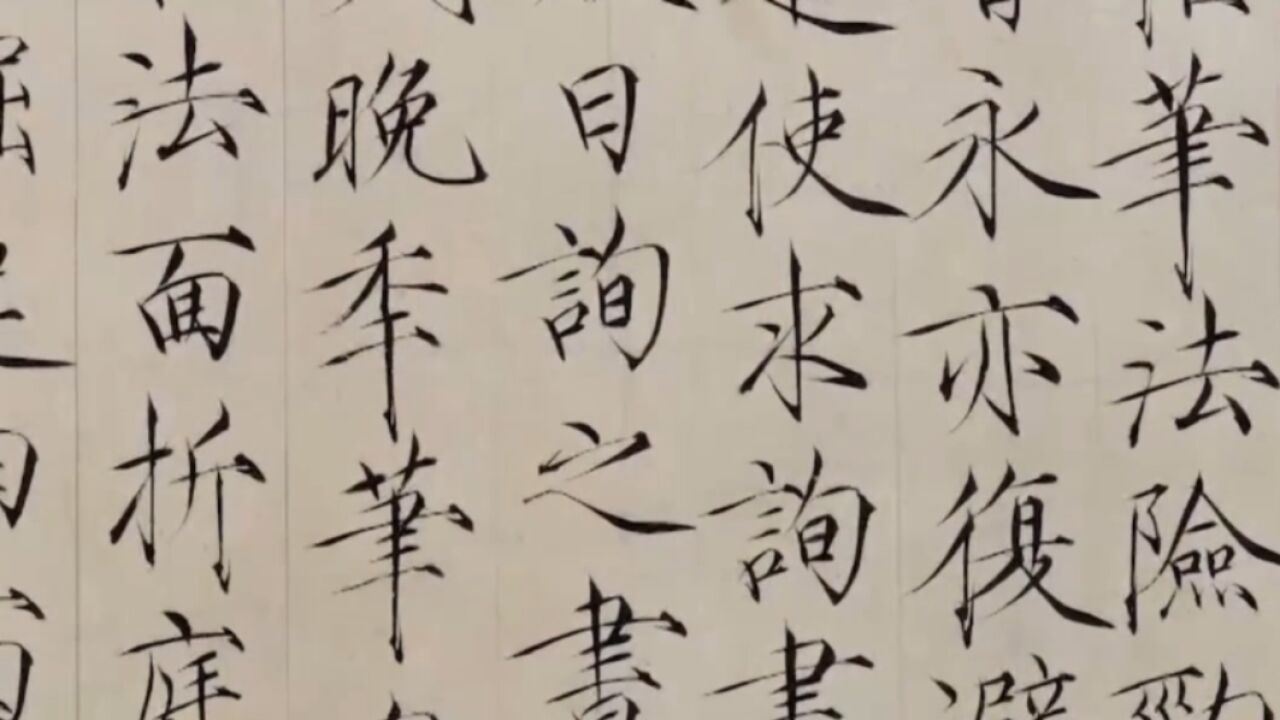 筆法險勁
永亦復避
使求詢書
日詢之書
晚年筆
法面折庭